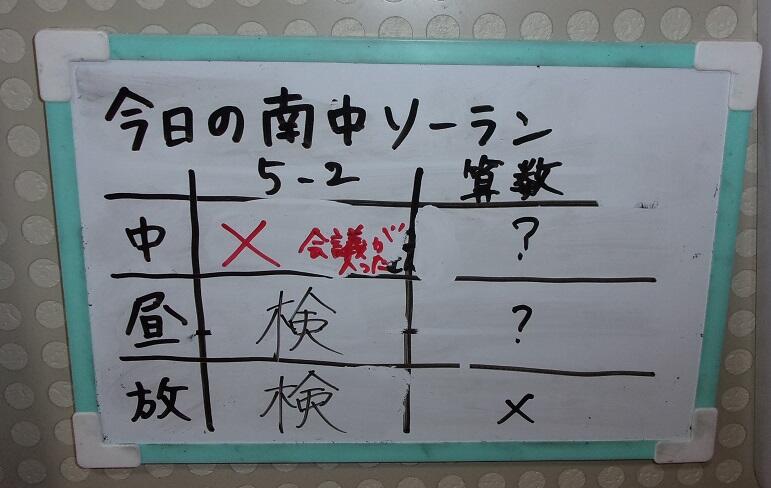 今日の南中ソーラン
5-2 算数
中 × 会議が
入った ?
昼 検 ?
放 検 ×